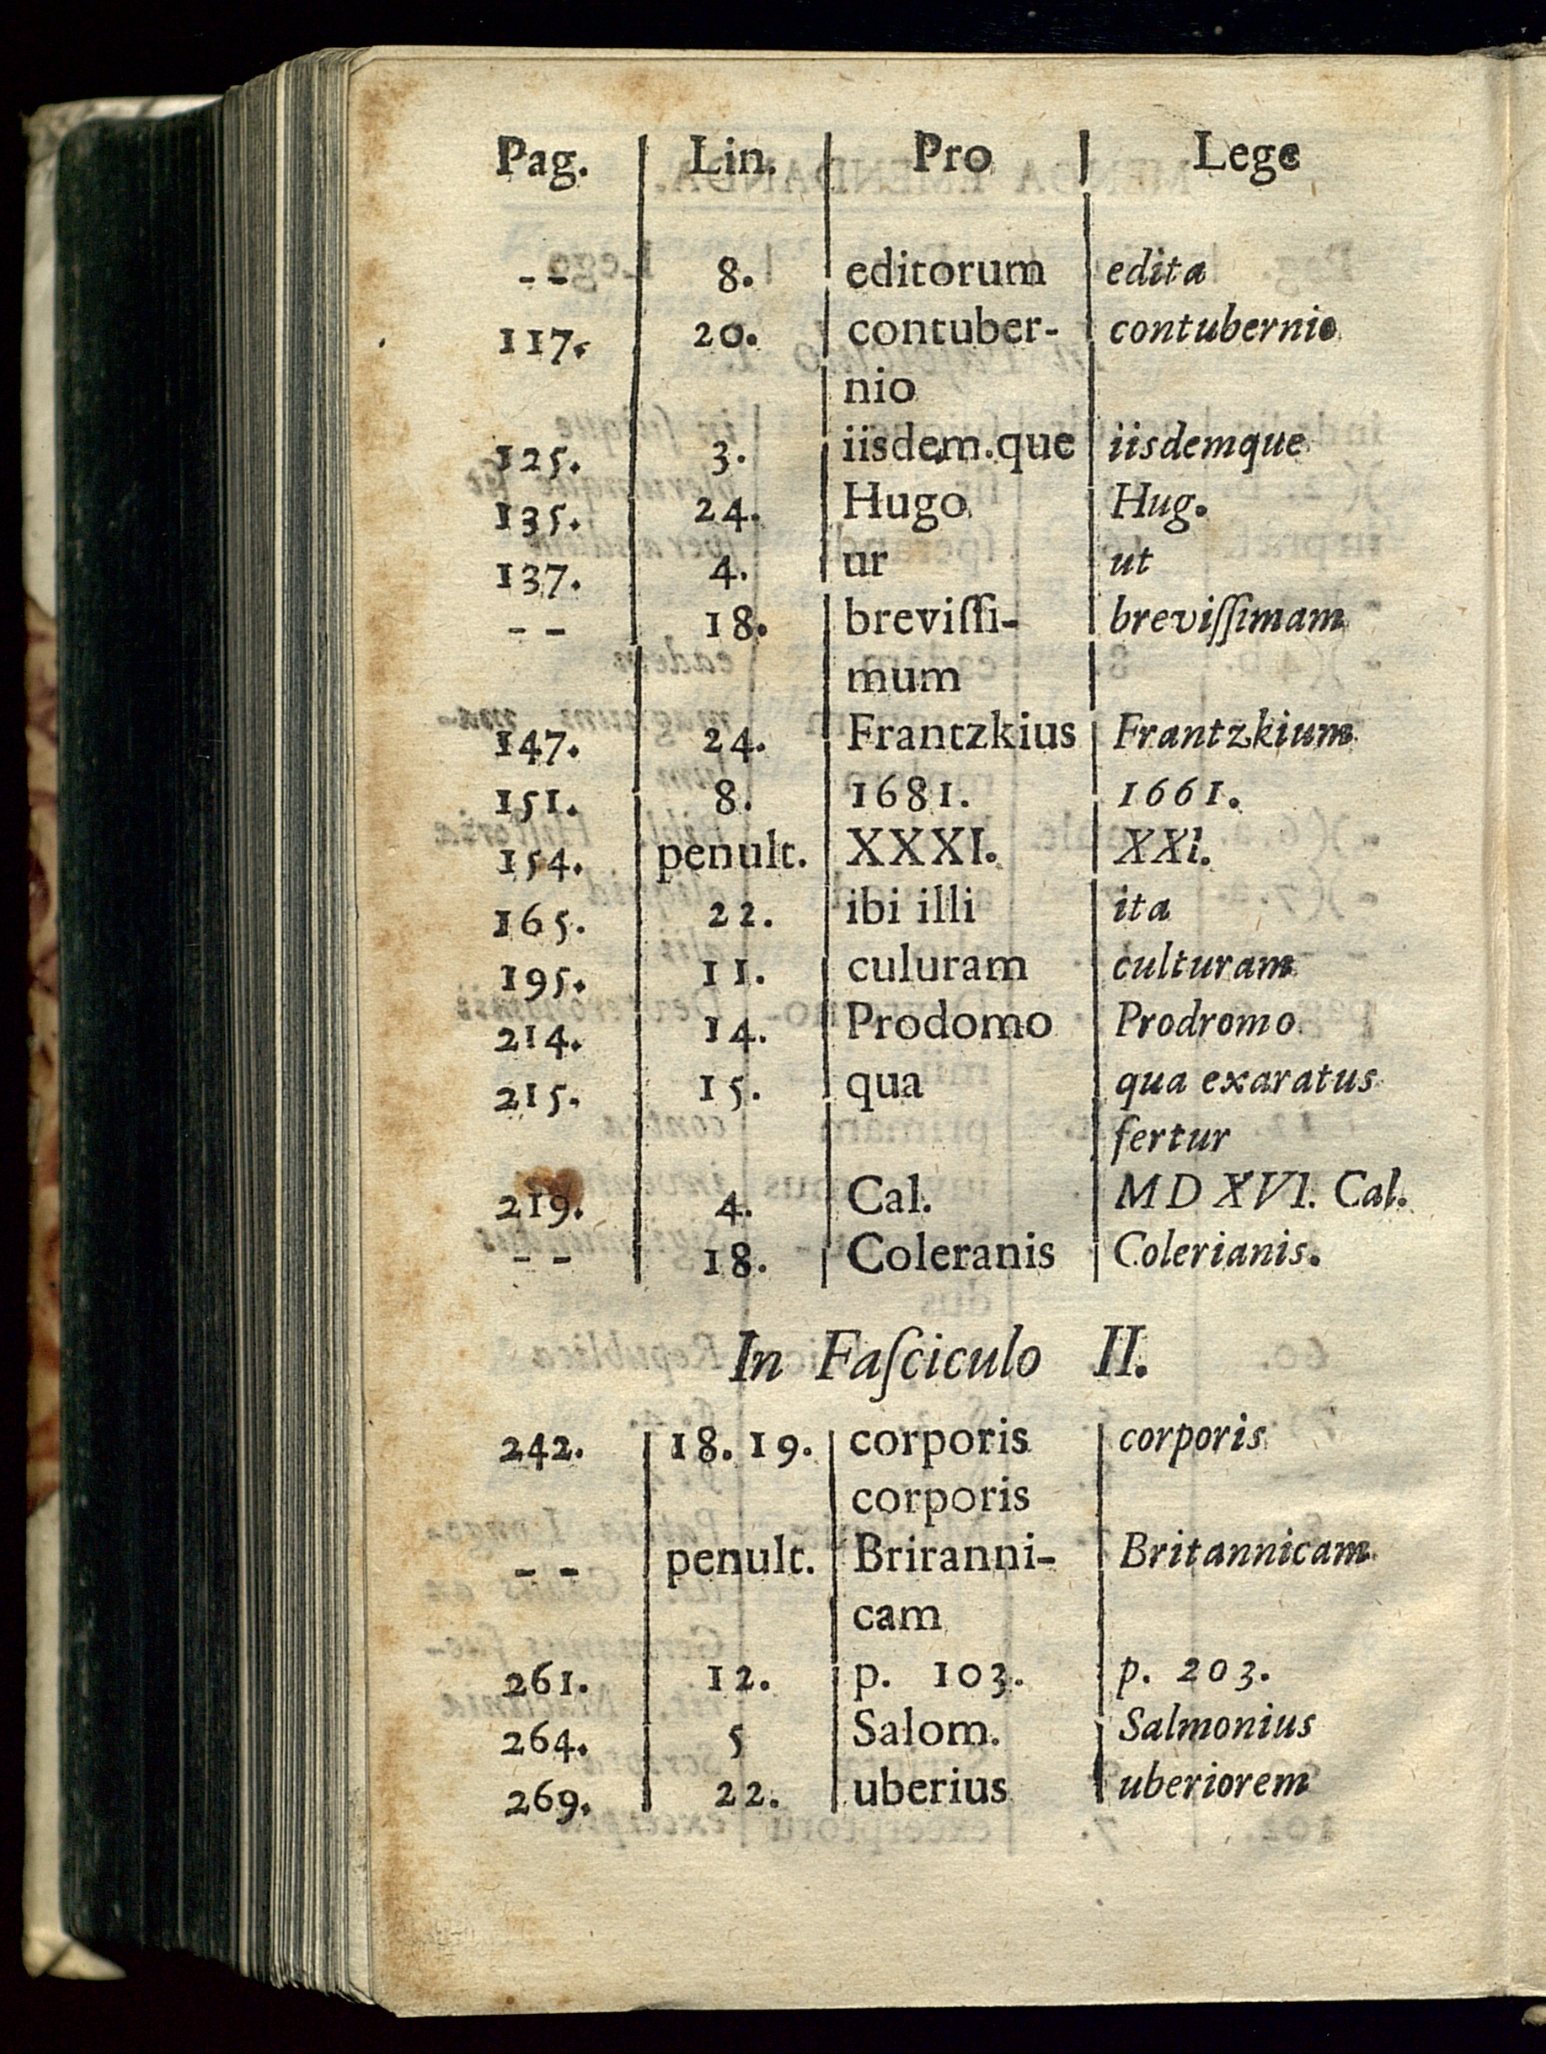 Pag. Lin. Pro Lege
-- 8. editorum edita
117. 20. contuber- contubernio
nio
125. 3. iisdem.que iisdemque
135. 24. Hugo Hug.
137. 4. ur ut
-- 18. breviſſi- breviſſimam
mum
147. 24. Frantzkius Frantzkium
151. 8. 1681. 1661.
154. penult. XXXI. XXI.
165. 22. ibi illi ita
195. 11. culuram culturam
214. 14. Prodomo Prodromo
215. 15. qua qua exaratus
fertur
219. 4. Cal. MD XVI. Cal.
-- 18. Coleranis Colerianis.
In Faſciculo II.
242. 18. 19. corporis corporis
corporis
-- penult. Briranni- Britannicam
cam
261. 12. p. 103. p. 203.
264. 5 Salom. Salmonius
269. 22. uberius uberiorem